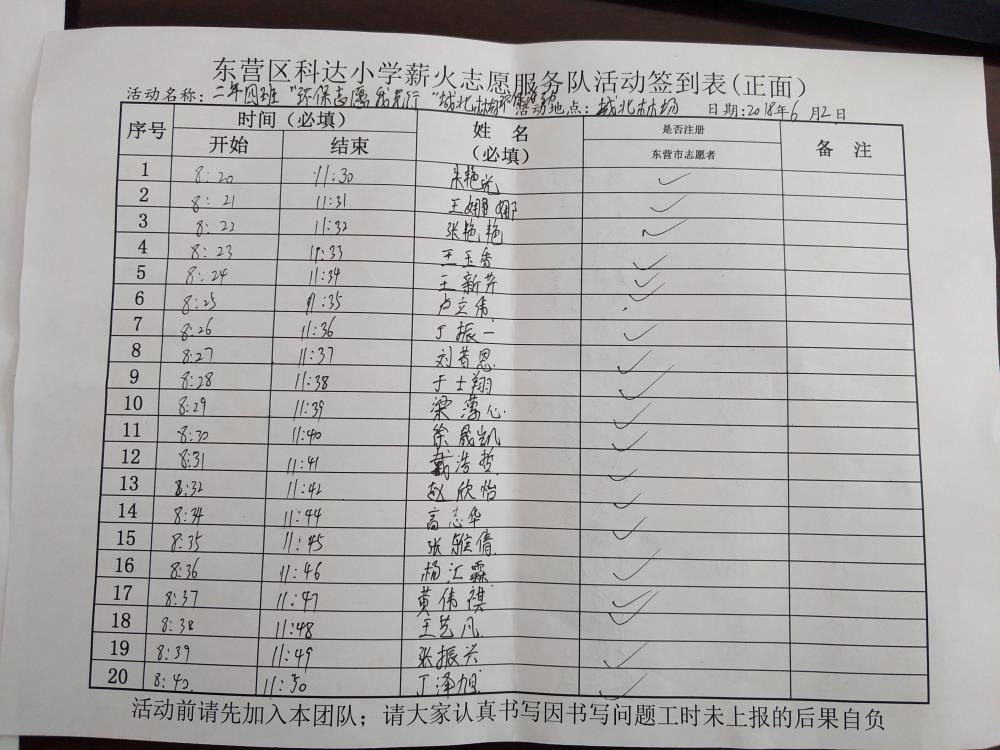 东营区科达小学薪火志愿服务队活动签到表(正面)
活动名称：二年四班"环保志愿我先行"城北林场 活动地点：城北林场 日期:2018年6月2日
序号 时间（必填） 姓名（必填） 是否注册东营市志愿者 备注
开始 结束
1 8:20 11:30
2 8:21 11:31 王姗姗 ✓
3 8:22 11:32 张艳艳 ✓
4 8:23 11:33 王玉香 ✓
5 8:24 11:34 王新芹 ✓
6 8:25 11:35 卢立伟 ✓
7 8:26 11:36 丁振一 ✓
8 8:27 11:37 刘昔恩 ✓
9 8:28 11:38 于士翔 ✓
10 8:29 11:39 梁 心 ✓
11 8:30 11:40 徐晟凯 ✓
12 8:31 11:41 戴浩哲 ✓
13 8:32 11:42 赵欣怡 ✓
14 8:34 11:44 高志华 ✓
15 8:35 11:45 张雅倩 ✓
16 8:36 11:46 杨汇霖 ✓
17 8:37 11:47 黄伟祺 ✓
18 8:38 11:48 王艺凡 ✓
19 8:39 11:49 张振兴 ✓
20 8:40 11:50 丁泽旭 ✓
活动前请先加入本团队；请大家认真书写因书写问题工时未上报的后果自负